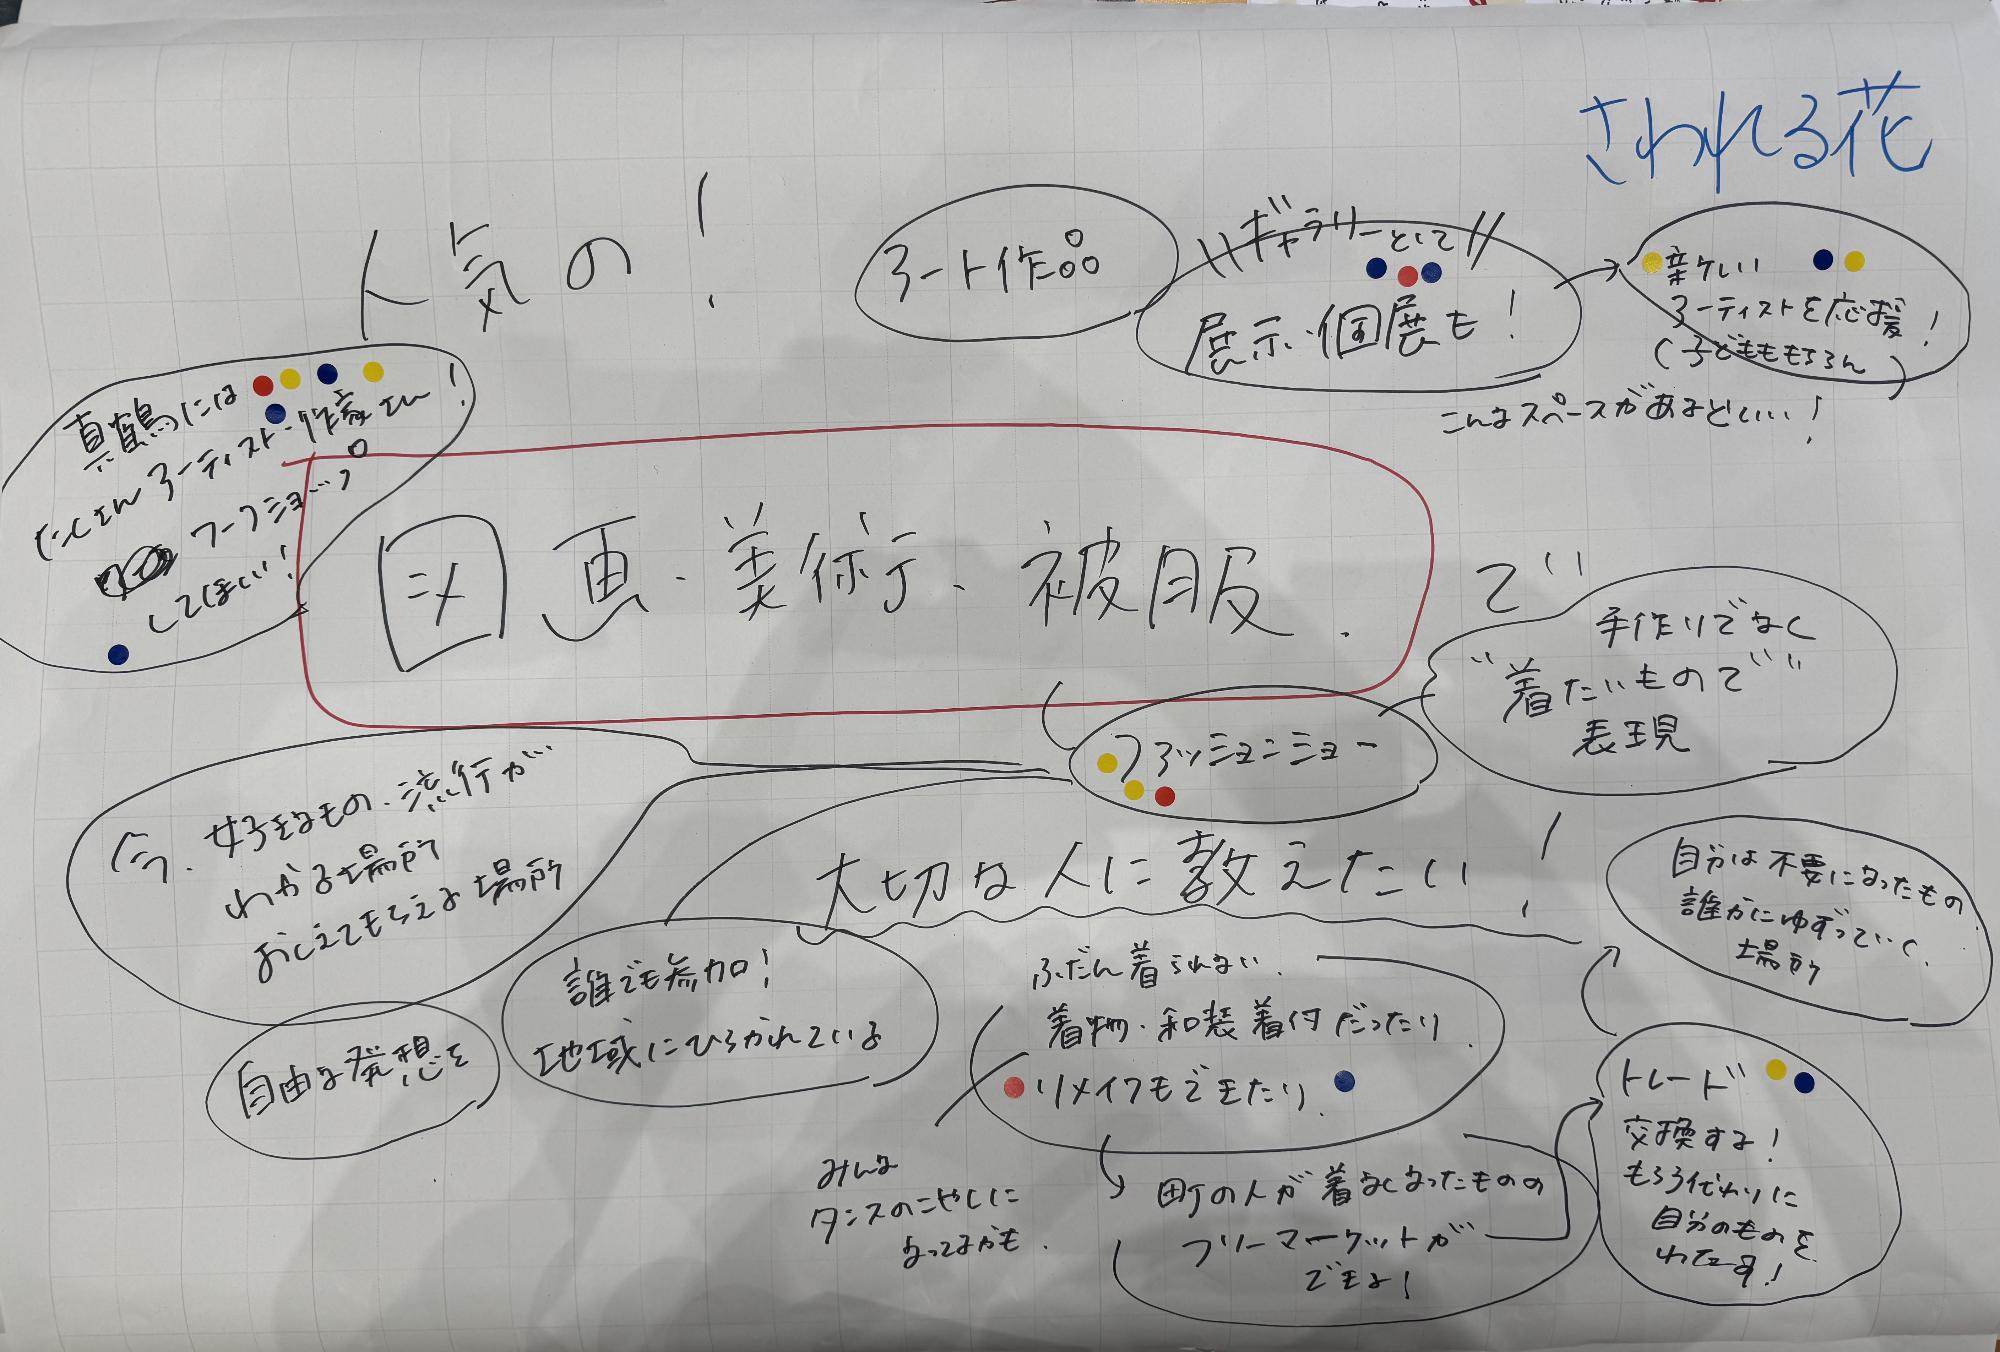 さわれる花
人気の!
アート作品
\\ギャラリーとして//
展示・個展も!
新しい
アーティストを応援!
(子どもももちろん)
こんなスペースがあるといい!
真鶴には
たくさんアーティスト・作家さん!
ワークショップ
してほしい!
図画・美術・被服.
で
手作りでなく
"着たいもので"
表現
ファッションショー
今、好きなもの・流行が
わかる場所
おしえてもらえる場所
大切な人に教えたい!
自分は不要になったもの
誰かにゆずっていく
場所
誰でも参加!
地域にひらかれている
自由な発想を
ふだん着られない
着物・和装着付だったり
リメイクもできたり
みんな
タンスのこやしに
なってるかも.
町の人が着なくなったものの
フリーマーケットが
できる!
トレード
交換する!
もらう代わりに
自分のものを
わたす!